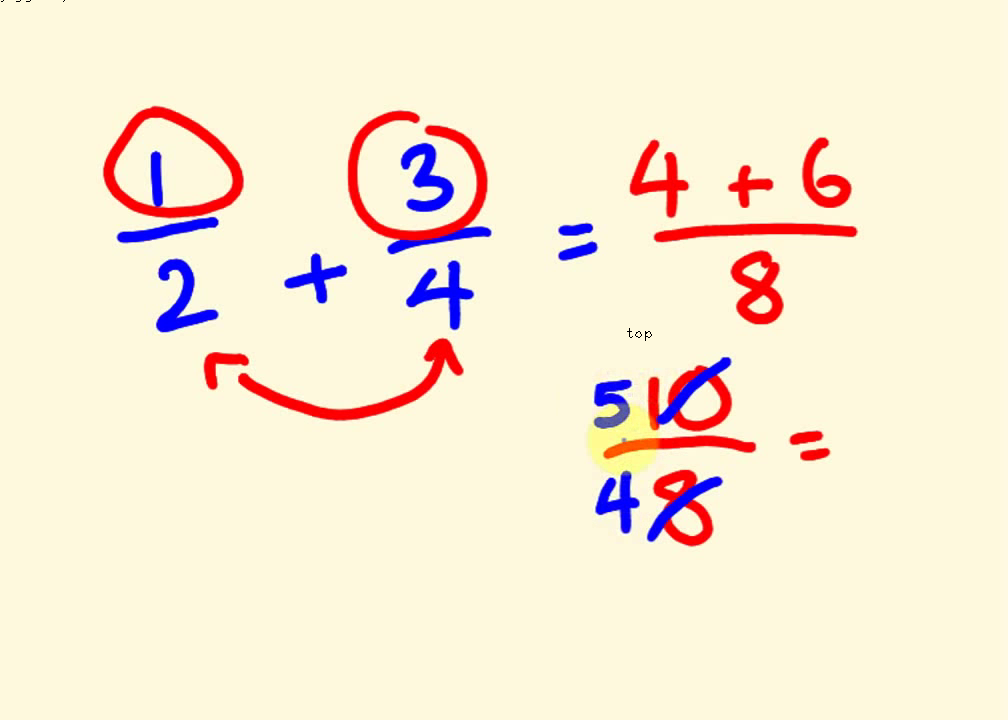 1/2 + 3/4 = 4 + 6/8
top
5 10/4 8 =